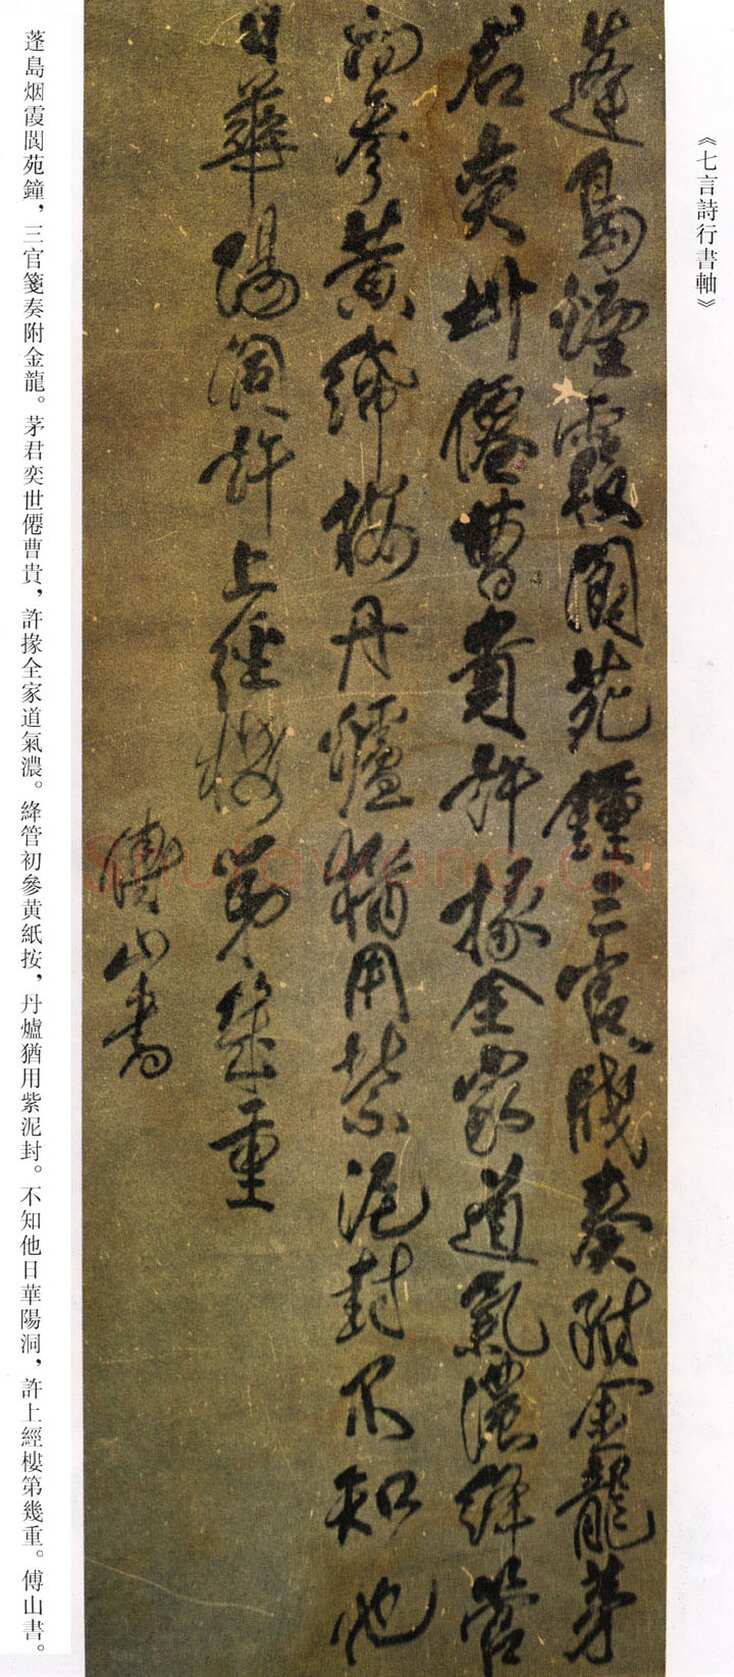 《七言詩行書軸》
蓬島煙霞閬苑鍾三官牋奏附金龍茅
君奕世僊曹貴許掾全家道氣濃絳管
初參黃紙按丹爐猶用紫泥封不知他
日華陽洞許上經樓第幾重
傅山書
蓬島烟霞閬苑鐘，三官箋奏附金龍。茅君奕世僊曹貴，許掾全家道氣濃。絳管初參黄紙按，丹爐猶用紫泥封。不知他日華陽洞，許上經樓第幾重。傅山書。
Shufawang.CN